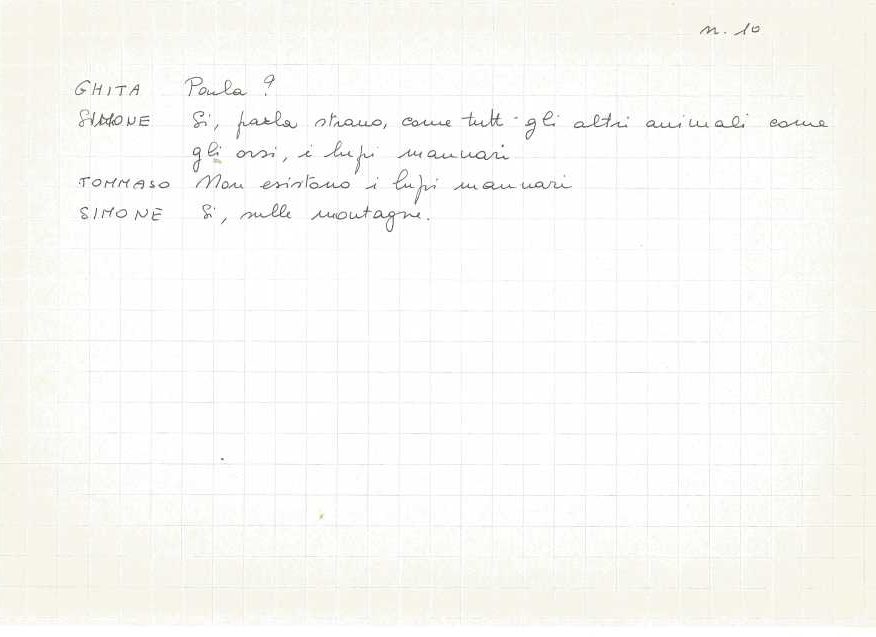 n. 10
GHITA Parla ?
SIMONE Si, parla strano, come tutti gli altri animali come
gli orsi, i lupi mannari
TOMMASO Non esistono i lupi mannari
SIMONE Si, sulle montagne.